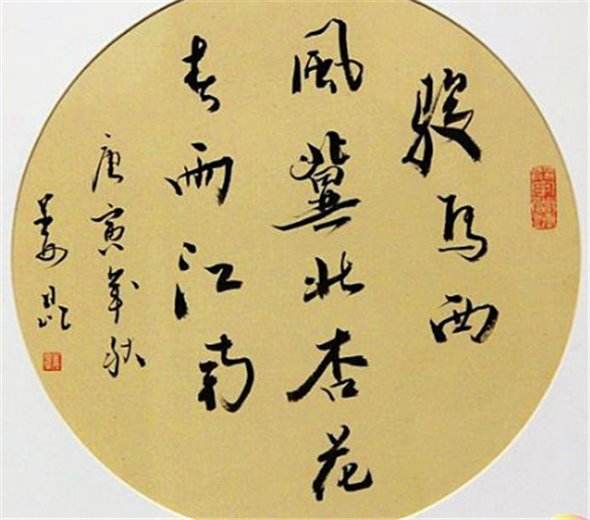 骏马西
風冀北杏花
春雨江南
庚寅年秋
娄昆